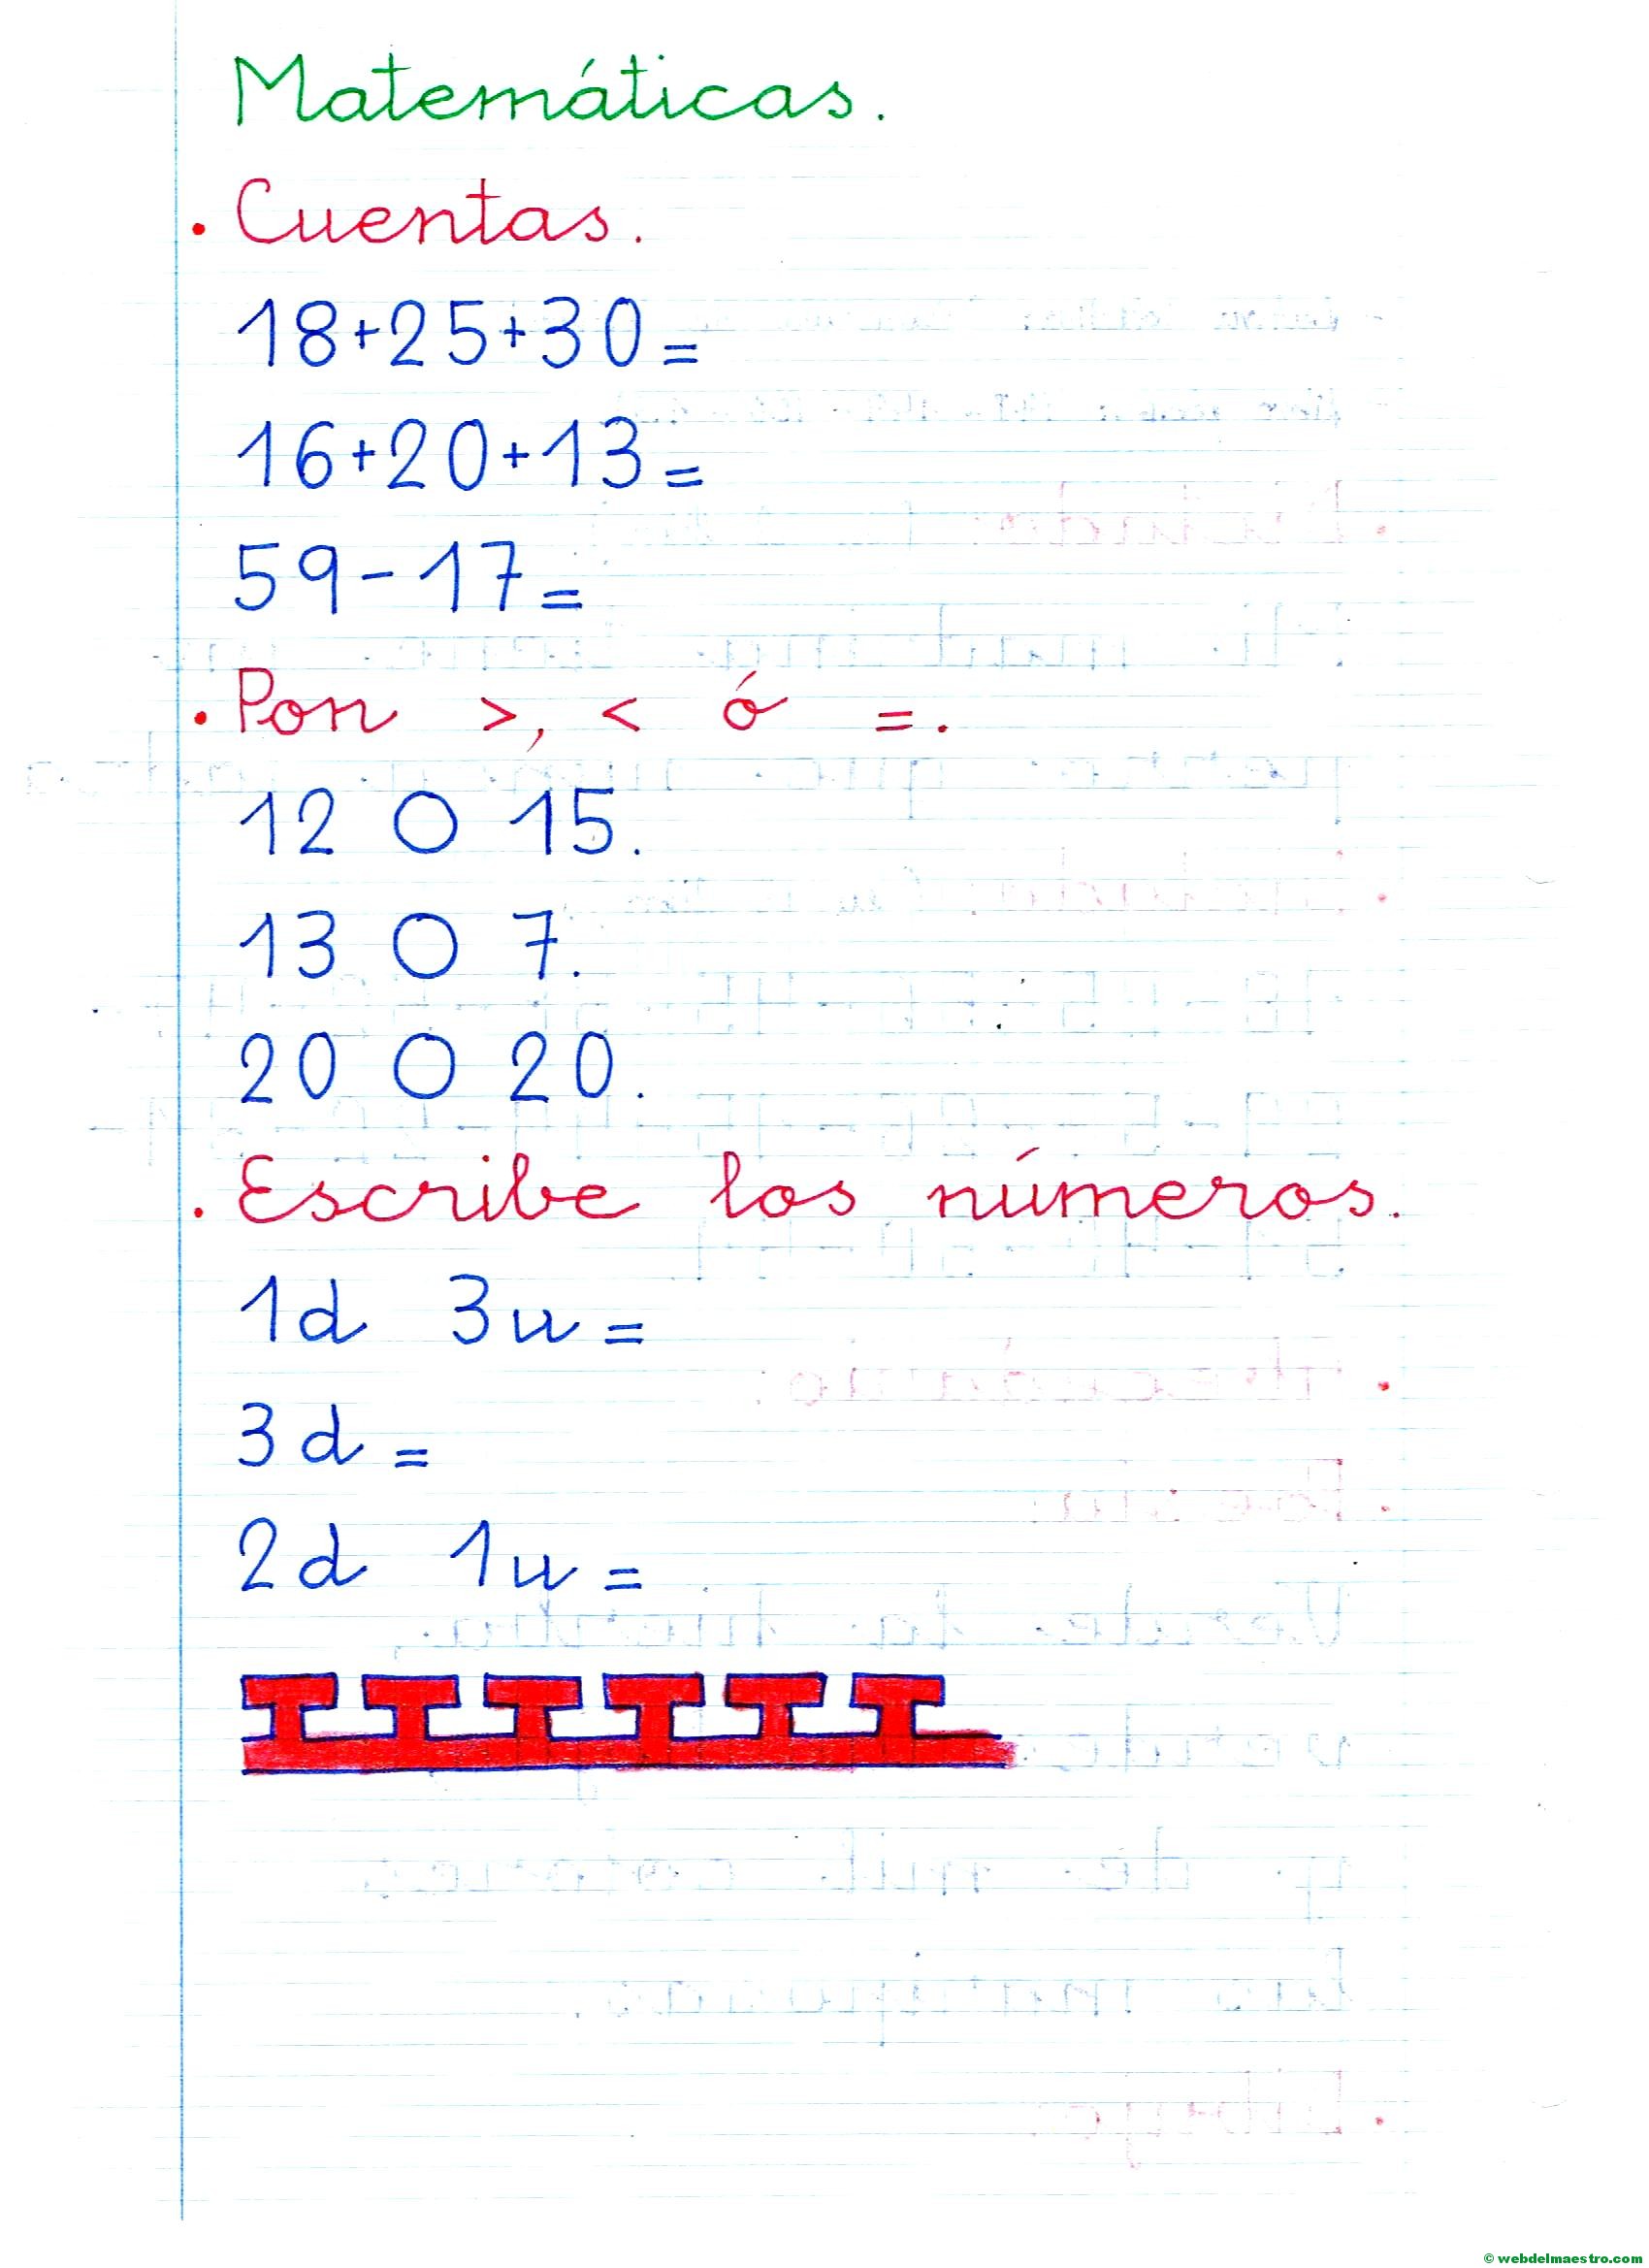 Matemáticas.
. Cuentas.
18+25+30=
16+20+13=
59-17=
. Pon >, < ó =.
12 O 15.
13 O 7.
20 O 20.
. Escribe los números.
1d 3u=
3d=
2d 1u=
© webdelmaestro.com